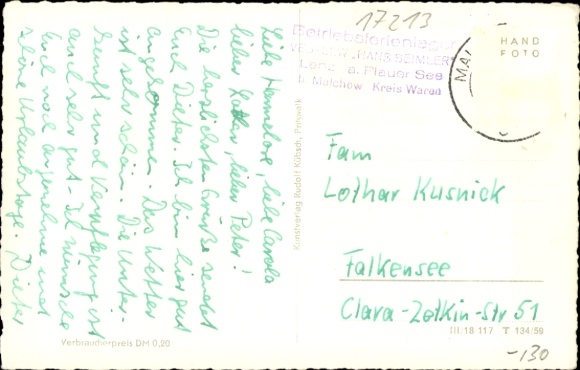 17213
Betriebsferienlager
VEB LEW "HANS BEIMLER"
Lenz a. Plauer See
b. Malchow Kreis Waren
HAND
FOTO
MAL
Liebe Hannelore, liebe Carola
lieber Lothar, lieber Peter!
Die herzlichsten Grüße sendet
Euch Dieter. Ich bin hier gut
angekommen. Das Wetter
ist sehr schön. Die Unter-
kunft und Verpflegung ist
auch sehr gut. Ich wünsche
Euch noch angenehme und
schöne Urlaubstage. Dieter
Verbraucherpreis DM 0,20
Kunstverlag Rudolf Kübsch,
Fam
Lothar Kusnick
Falkensee
Clara-Zetkin-Str 51
III/18 117 T 134/59
-130